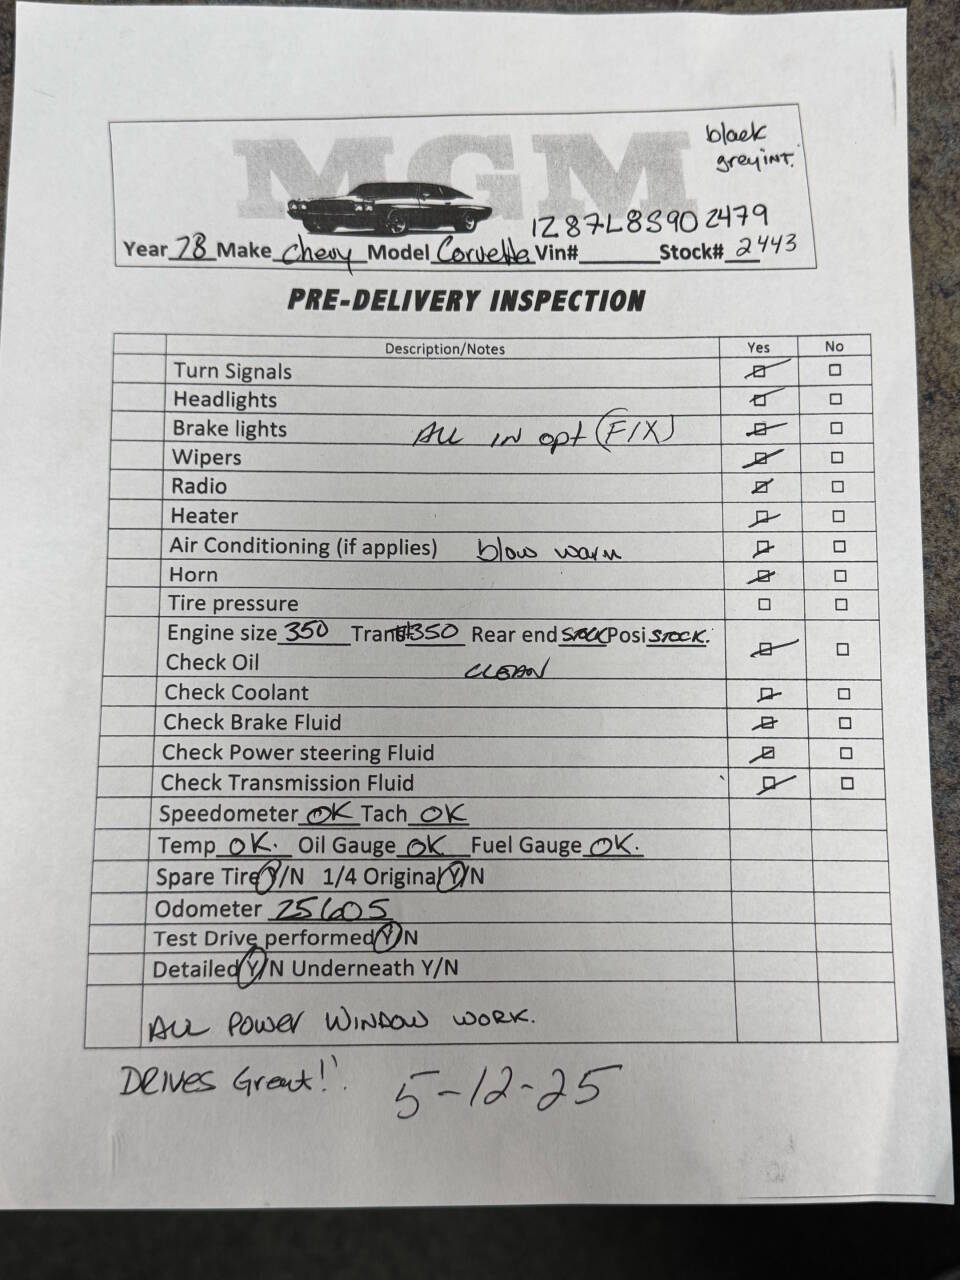 MGM
black
grey INT.
1Z87L8S902479
Year 78 Make Chevy Model Corvette Vin# Stock# 2443
PRE-DELIVERY INSPECTION
Description/Notes Yes No
Turn Signals
Headlights
Brake lights ALL in opt (FIX)
Wipers
Radio
Heater
Air Conditioning (if applies) blow warm
Horn
Tire pressure
Engine size 350 Trans 350 Rear end STOCK Posi STOCK.
Check Oil CLEAN
Check Coolant
Check Brake Fluid
Check Power steering Fluid
Check Transmission Fluid
Speedometer OK Tach OK
Temp OK. Oil Gauge OK Fuel Gauge OK.
Spare Tire Y/N 1/4 Original Y/N
Odometer 25605
Test Drive performed Y/N
Detailed Y/N Underneath Y/N
ALL POWER WINDOW WORK.
DRIVES Great!!
5-12-25